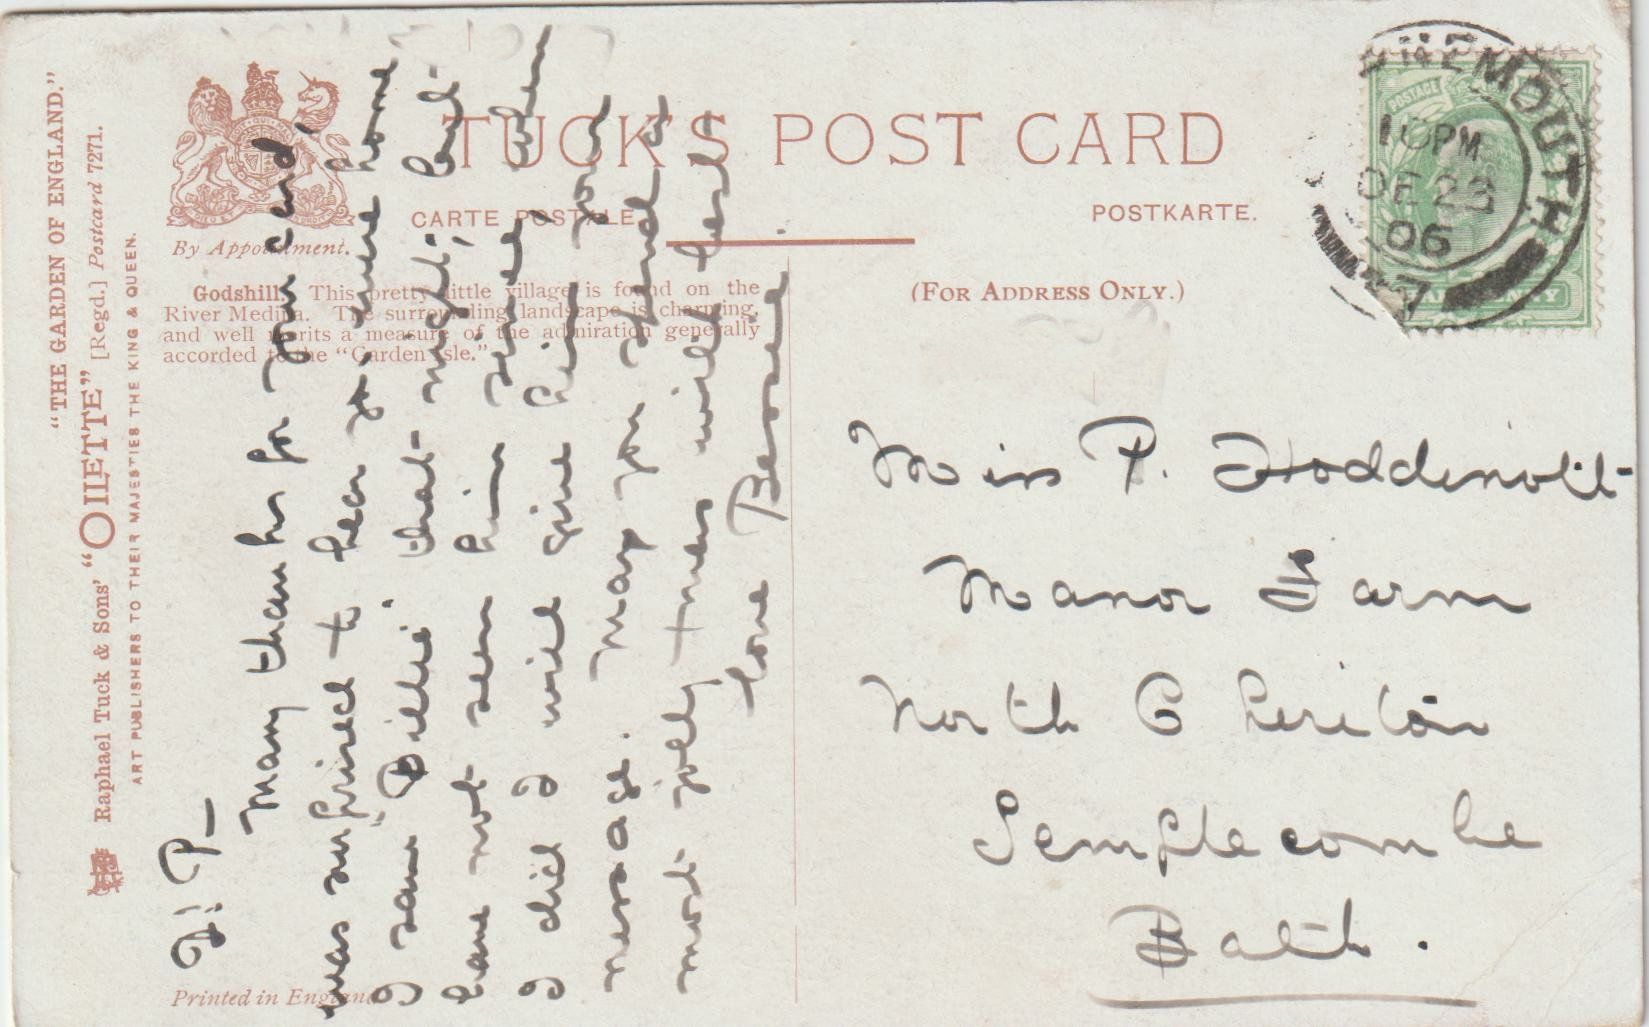 "THE GARDEN OF ENGLAND."
Raphael Tuck & Sons' "OILETTE" [Regd.] Postcard 7271.
ART PUBLISHERS TO THEIR MAJESTIES THE KING & QUEEN.
By Appointment.
TUCK'S POST CARD
CARTE POSTALE
POSTKARTE.
Godshill. This pretty little village is found on the
River Medina. The surrounding landscape is charming,
and well merits a measure of the admiration generally
accorded to the "Garden Isle."
(FOR ADDRESS ONLY.)
POSTAGE
10 PM
DE 22
06
D. P_
Many thanks for your card,
was surprised to hear you were home
I saw "Billie" that night, but
have not seen him since, when
I did I will give him your
message. May you spend a
most jolly Xmas with best
love Bessie.
Miss P. Hoddinott
Manor Farm
North Cheriton
Templecombe
Bath.
Printed in England